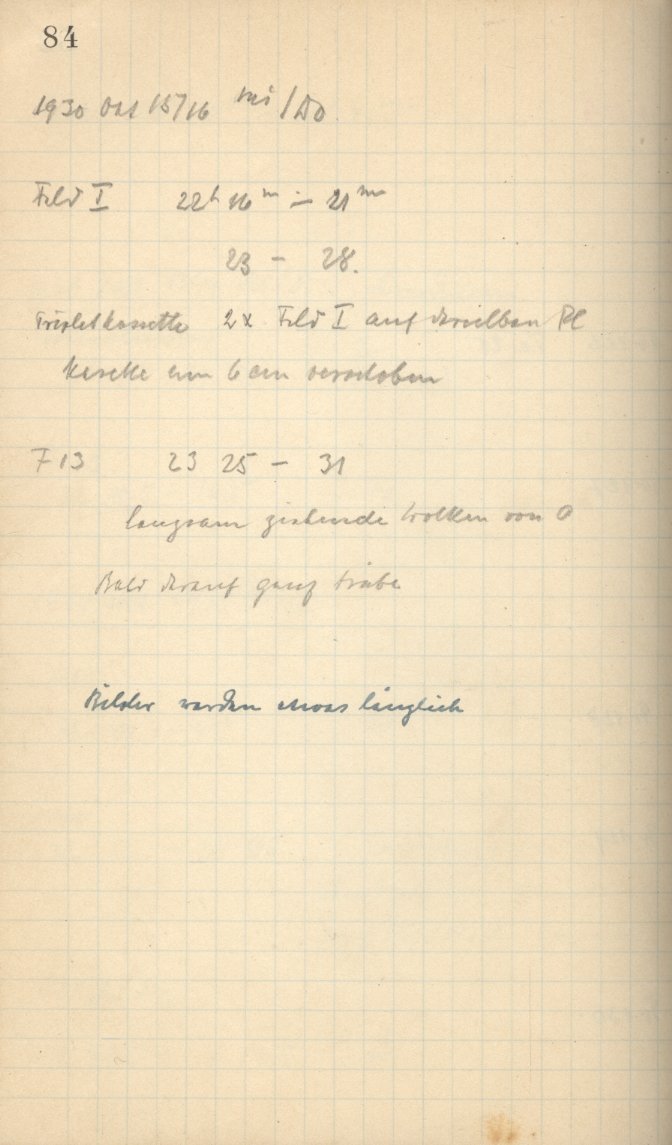 84
1930 Okt 15/16 Mi/Do
Feld I 22h 16m – 21m
23 – 28.
Tripletkassette 2x Feld I auf derselben Pl
Kasette um 6 cm verschoben
F 13 23 25 – 31
langsam ziehende Wolken von O
Bald darauf ganz trübe
Bilder werden etwas länglich